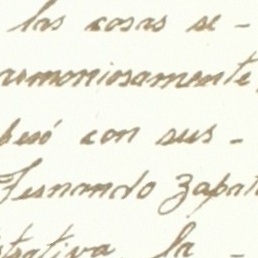 las cosas se-
armoniosamente,
besó con sus-
Fernando Zapat
trativa, la -